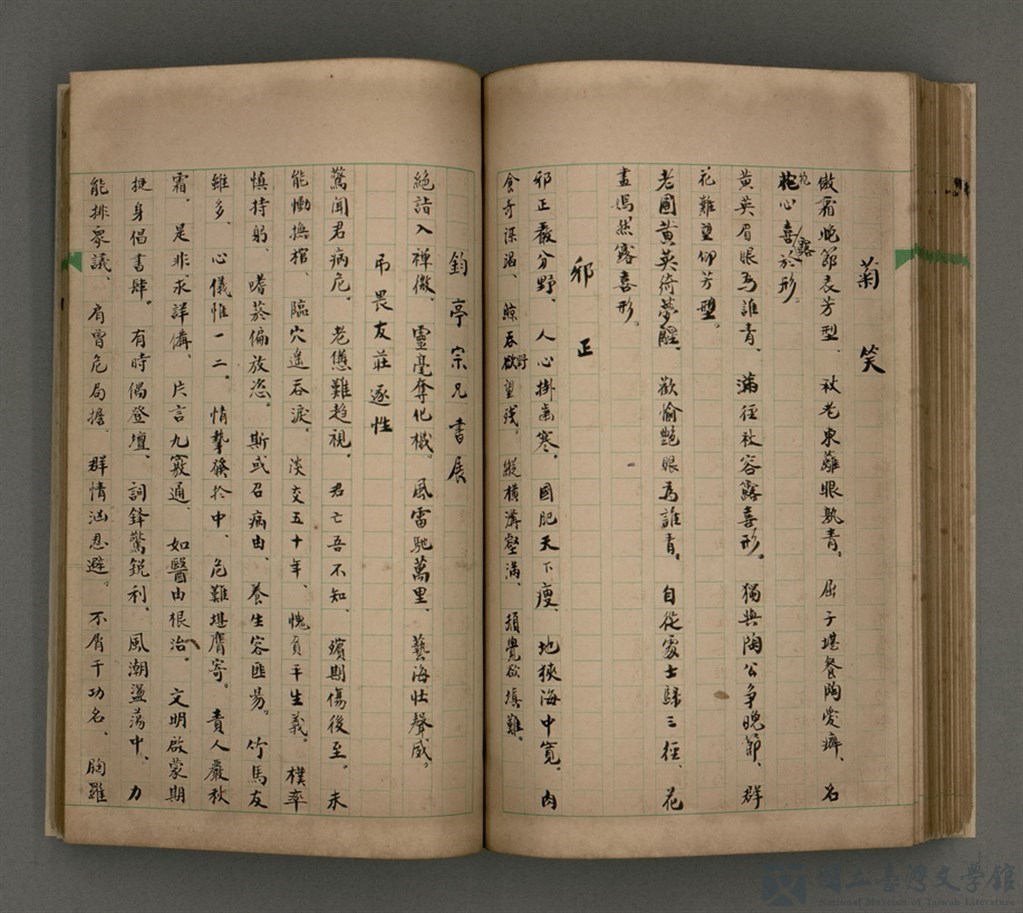 菊笑
傲霜晚節表芳型、秋老東籬眼孰青。屈子堪餐陶愛癖、名
花心喜露於形。
黃英眉眼為誰青、滿徑秋容露喜形。獨與陶公爭晚節、群
花難望仰芳型。
老圃黃英倚夢醒、歡愉艷眼為誰青。自從處士歸三徑、花
盡嫣然露喜形。
邪正
邪正嚴分野、人心掛齒寒。國肥天下瘦、地狹海中寬。肉
食奇深淵、鯨吞野望殘。縱橫溝壑滿、須覺欲填難。
鈞亭宗兄書展
絕詣入禪微、靈毫奪化機。風雷馳萬里、藝海壯聲威。
吊畏友莊遂性
驚聞君病危、老憊難趨視。君亡吾不知、殯期傷後至。未
能慟撫棺、臨穴遙吞淚。淡交五十年、愧負平生義。樸率
慎持躬、嗜菸偏放恣。斯或召病由、養生容匪易。竹馬友
雖多、心儀惟一二。情摯發於中、危難堪膺寄。責人嚴秋
霜、是非永詳備、片言九竅通、如醫由根治。文明啟蒙期
挺身倡書肆。有時偶登壇、詞鋒驚銳利、風潮盪蕩中、力
能排眾議、肩曾危局擔、群情洶忍避。不屑干功名、胸羅
國立臺灣文學館
National Museum of Taiwan Literature